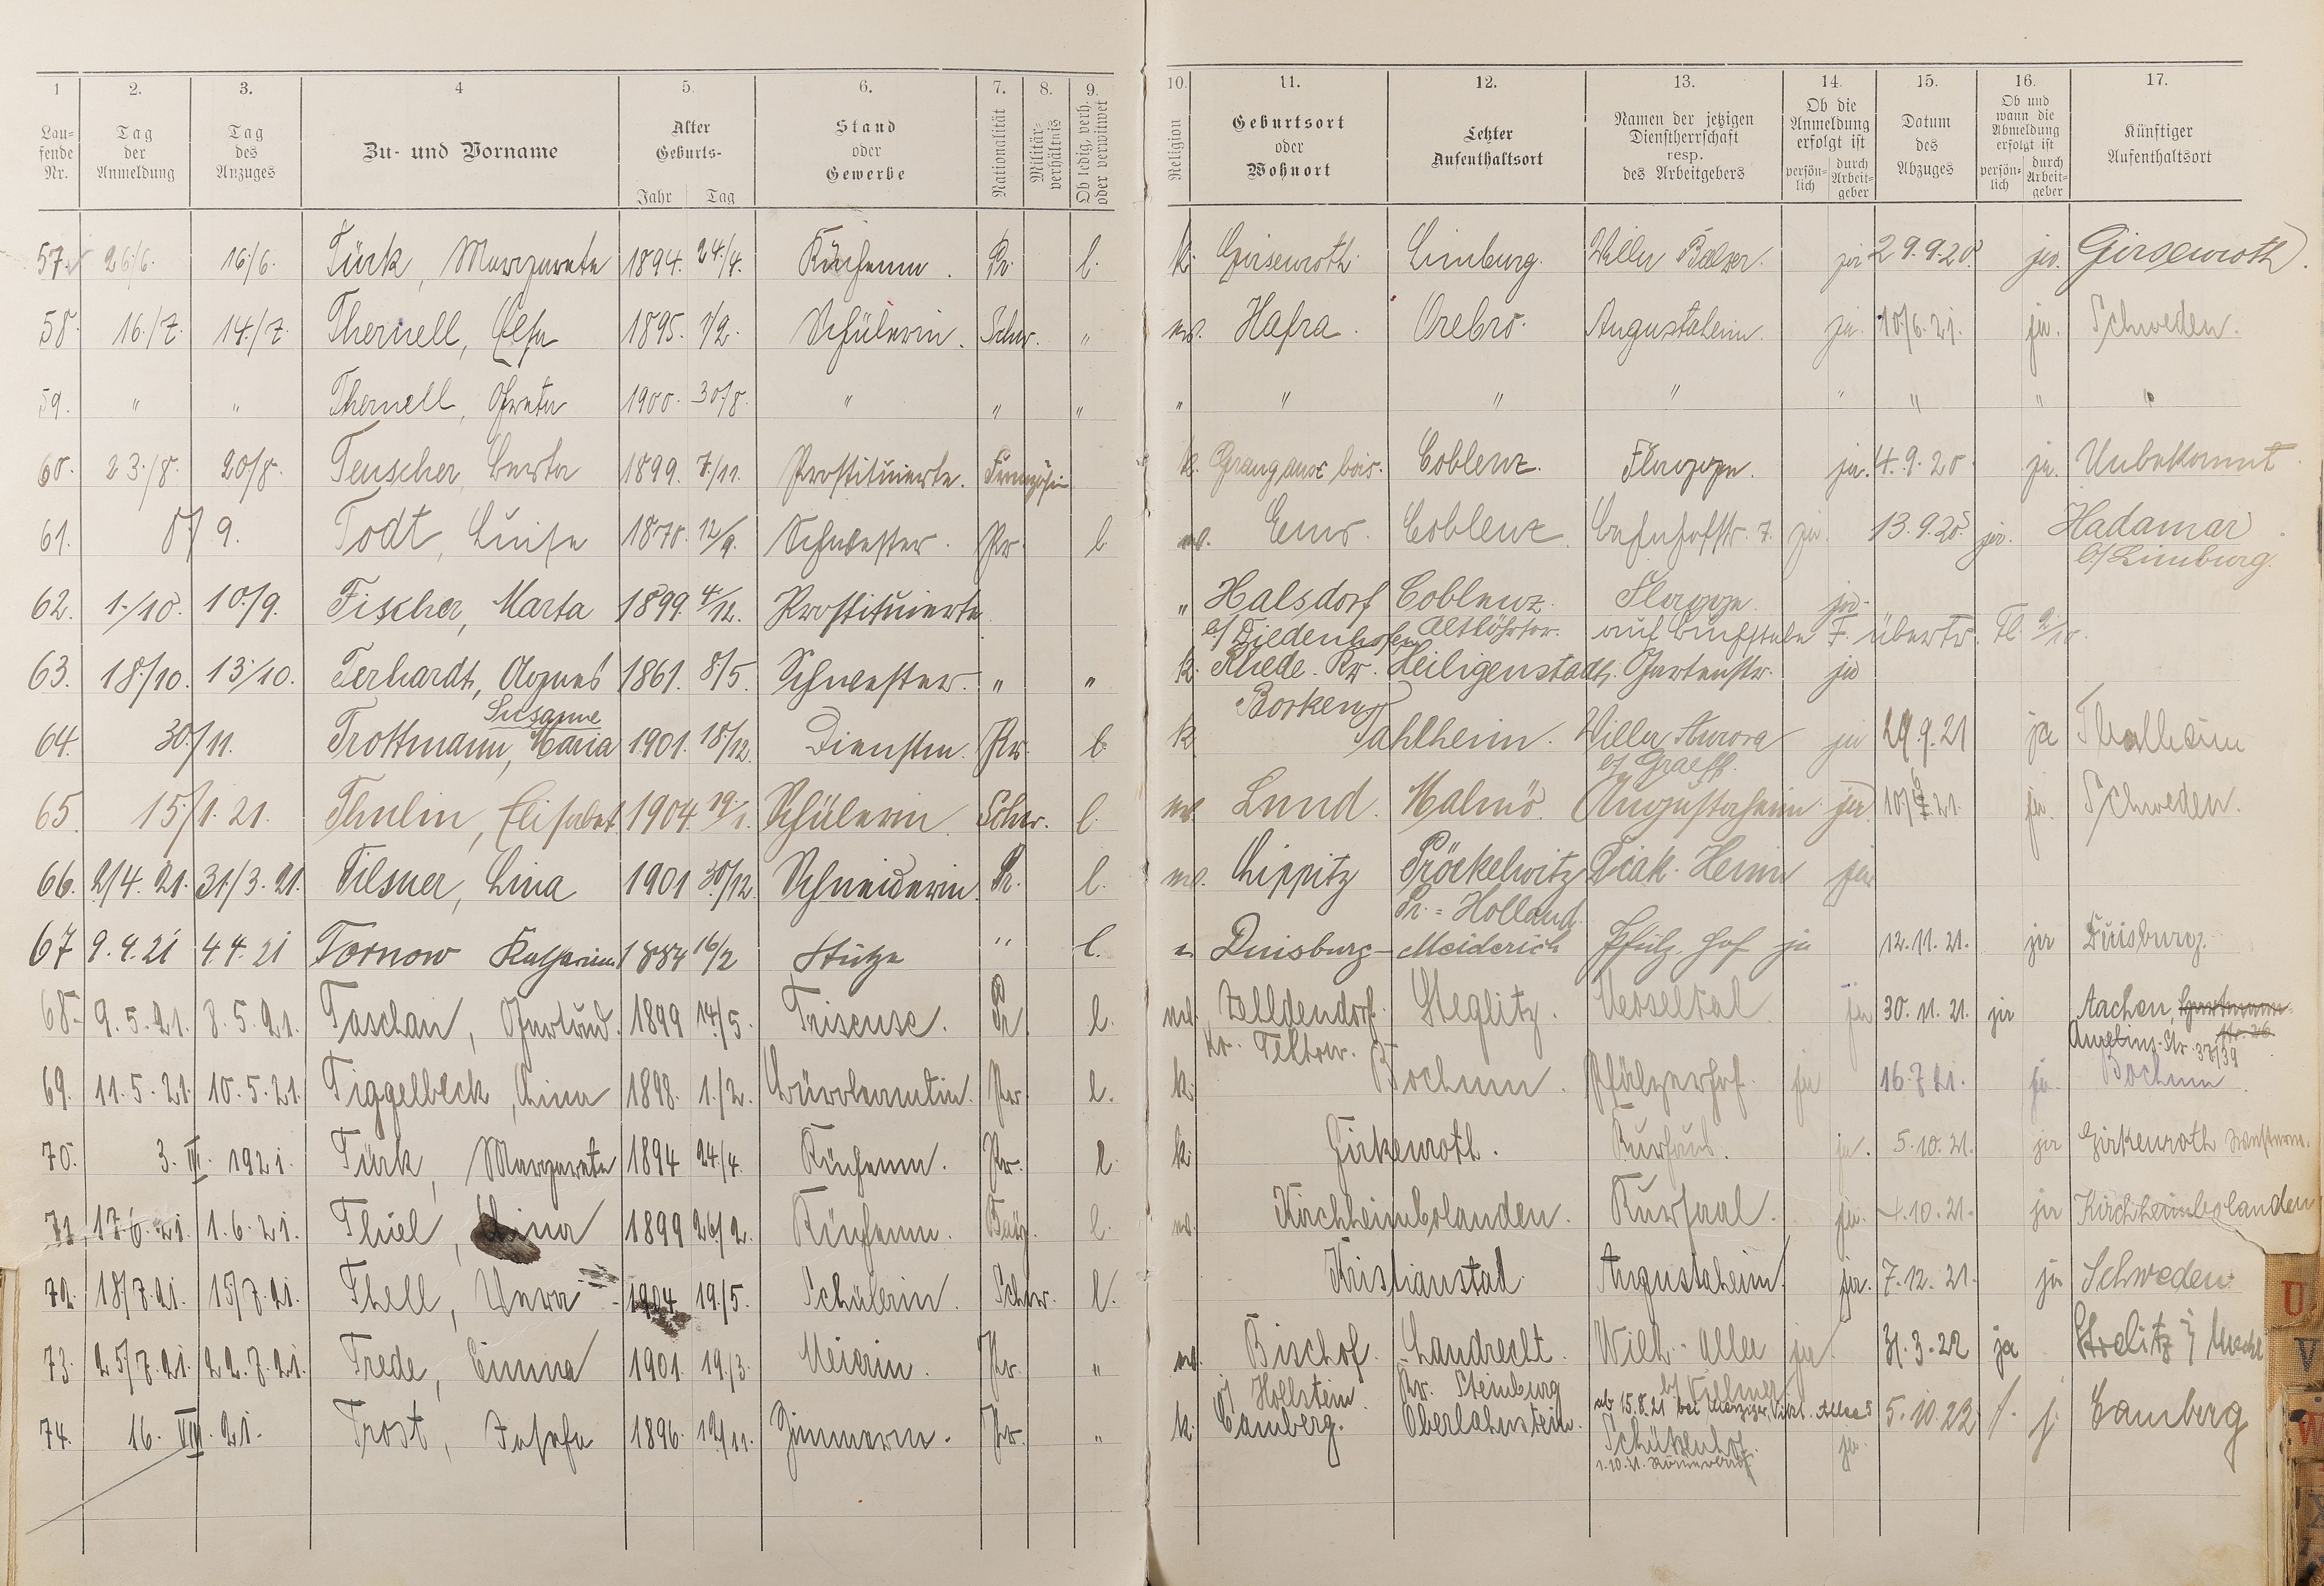 1 2. 3. 4 5. 6. 7. 8. 9. 10. 11. 12. 13. 14. 15. 16. 17.
Laufende Nr. Tag der Anmeldung Tag des Anzuges Zu- und Vorname Alter Geburts- Jahr Tag Stand oder Gewerbe Nationalität Militärverhältnis Ob ledig, verh. oder verwitwet Religion Geburtsort oder Wohnort Letzter Aufenthaltsort Namen der jetzigen Dienstherrschaft resp. des Arbeitgebers Ob die Anmeldung erfolgt ist persönlich durch Arbeitgeber Datum des Abzuges Ob und wann die Abmeldung erfolgt ist persönlich durch Arbeitgeber Künftiger Aufenthaltsort
57. 26/6. 16/6. Türk, Margarete 1894. 24/4. Küchenm. Pr. l. k. Girsenroth Limburg. Villa Balzer. ja 29.9.20. ja. Girsenroth.
58. 16./7. 14./7. Thernell, Elsa 1895. 1/2. Schülerin. Schw. " ev. Hafra. Orebro. Augustaheim. ja. 10/6.21. ja. Schweden.
59. " " Thernell, Greta 1900. 30/8. " " " " " " " " " " "
60. 23./8. 20/8. Teuscher, Berta 1899. 7/11. Prostituierte. Französin k. Grang aux bois. Coblenz. Flagge. ja. 4.9.20 ja. Unbekannt
61. 8/9. Todt, Luise 1870. 12/9. Schwester. Pr. l. ev. Ems. Coblenz. Bahnhofstr. 7. ja. 13.9.20. ja. Hadamar
b/Limburg.
62. 1./10. 10./9. Fischer, Marta 1899. 4/12. Prostituierte. " Halsdorf Coblenz. Flagge. ja.
b/Diedenhofen Altlöhrtor. auf Buchstabe F. übertr. Fl. 2/10.
63. 18./10. 13/10. Terhardt, Agnes 1861. 8/5. Schwester. " " k. Rhede. Kr. Heiligenstadt. Gartenstr. ja
Susanne Borken
64. 30./11. Trottmann, Maria 1901. 18/12. Dienstm. Pr. l. k. Tahlheim. Villa Aurora ja 29.9.21 ja Thalheim
b/Graeff.
65. 15/1.21. Thulin, Elisabet 1904. 19/1. Schülerin Schw. l. ev. Lund. Malmö. Augustaheim ja. 10/6.21. ja. Schweden.
66. 2/4.21. 31/3.21. Tilsner, Lina 1901 30/12. Schneiderin Pr. l. ev. Lippitz Pröckelwitz Diak. Heim ja
Pr.-Holland
67 9.4.21 4.4.21 Tornow Katharina 1884 16/2 Stütze " l. Duisburg-Meiderich Pfälz. Hof ja 12.11.21. ja Duisburg.
68. 9.5.21. 8.5.21. Taschan, Gertrud. 1899 14/5. Friseuse. Pr l. ev. Zelldendorf. Steglitz. Vesseltal ja 30.11.21. ja Aachen,
Kr. Teltow. Aurelius-Str. 37/39
69. 11.5.21. 10.5.21. Tiggelbeck, Lina 1898. 1./2. Bürobeamtin. Pr. l. k. Bochum. Pfälzerhof. ja 16.7.21. ja. Bochum.
70. 3. VI. 1921. Türk, Margarete 1894 24/4. Küchenm. Pr. l. k. Girkenroth. Kurhaus. ja. 5.10.21. ja Girkenroth
71. 17.6.21. 1.6.21. Thiel, Lina 1899 26/2. Küchenm. Bay. l. ev. Kirchheimbolanden. Kursaal. ja. 4.10.21. ja Kirchheimbolanden
72. 18/7.21. 15/7.21. Thell, 1904. 19/5. Schülerin. Schw. l. Kristianstad Augustaheim. ja. 7.12.21. ja Schweden.
73. 25/7.21. 22.7.21. Trede, Emma 1901. 19./3. Meierin. Pr. " ev. Bischof. Landrecht. Wilh.-Allee ja. 31.3.22 ja Strelitz i/ Meckl
i/ Hollstein. Kr. Steinburg b/ Villmer
74. 16. VIII. 21. Trost, Josefa 1896. 12/11. Zimmerm. Pr. " k. Camberg. Oberlahnstein. ab 15.8.21 bei Allee 5 5.10.22 j. Camberg
Schützenhof. ja.
1.10.21. Römerbad